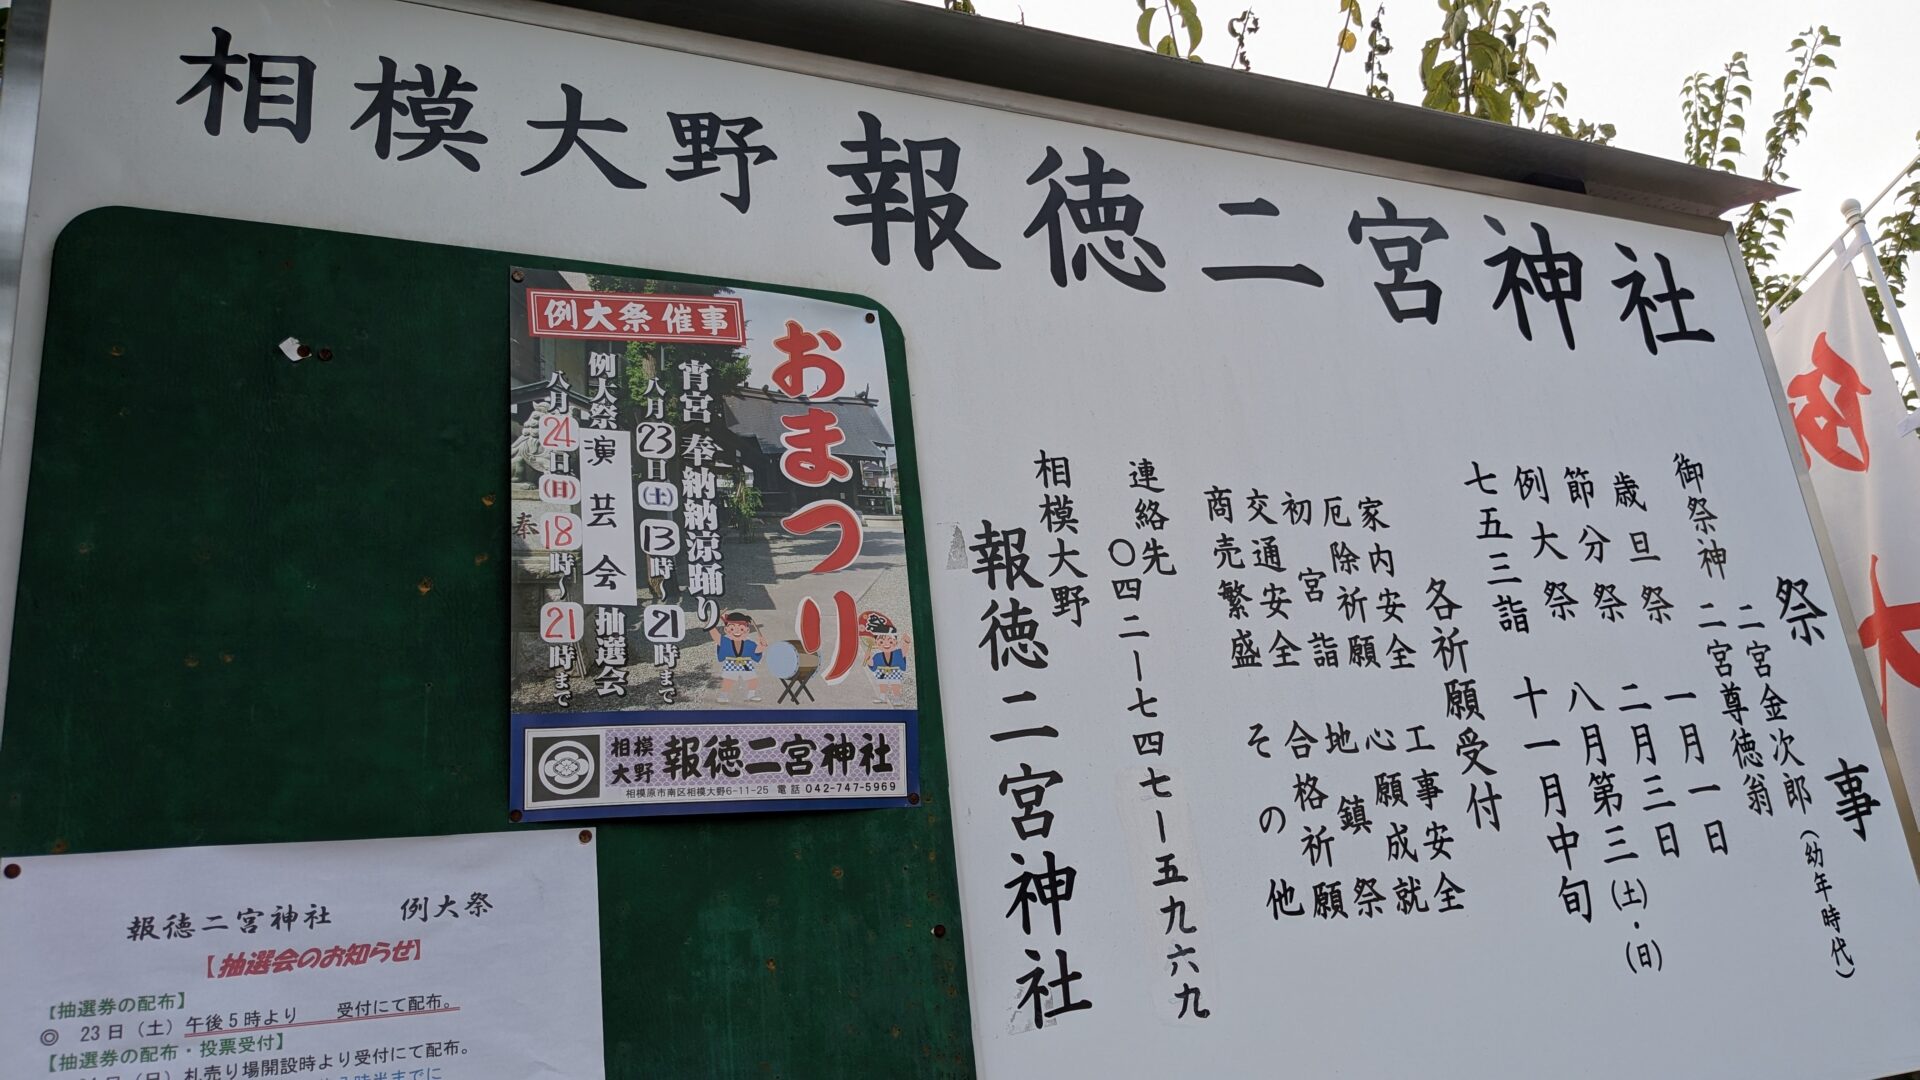 相模大野 報徳二宮神社
祭事
御祭神 二宮金次郎(幼年時代)
二宮尊徳翁
歳旦祭 一月一日
節分祭 二月三日
例大祭 八月第三(土)・(日)
七五三詣 十一月中旬
各祈願受付
家内安全 工事安全
厄除祈願 心願成就
初宮詣 地鎮祭
交通安全 合格祈願
商売繁盛 その他
連絡先 〇四二ー七四七ー五九六九
相模大野
報徳二宮神社
例大祭 催事
おまつり
宵宮 奉納納涼踊り
八月23日(土)13時~21時まで
例大祭 演芸会 抽選会
八月24日(日)18時~21時まで
奉
相模大野 報徳二宮神社
相模原市南区相模大野6-11-25 電話 042-747-5969
報徳二宮神社 例大祭
【抽選会のお知らせ】
【抽選券の配布】
◎ 23日(土)午後5時より 受付にて配布。
【抽選券の配布・投票受付】
日(日)札売り場開設時より受付にて配布。
時半までに
例
大